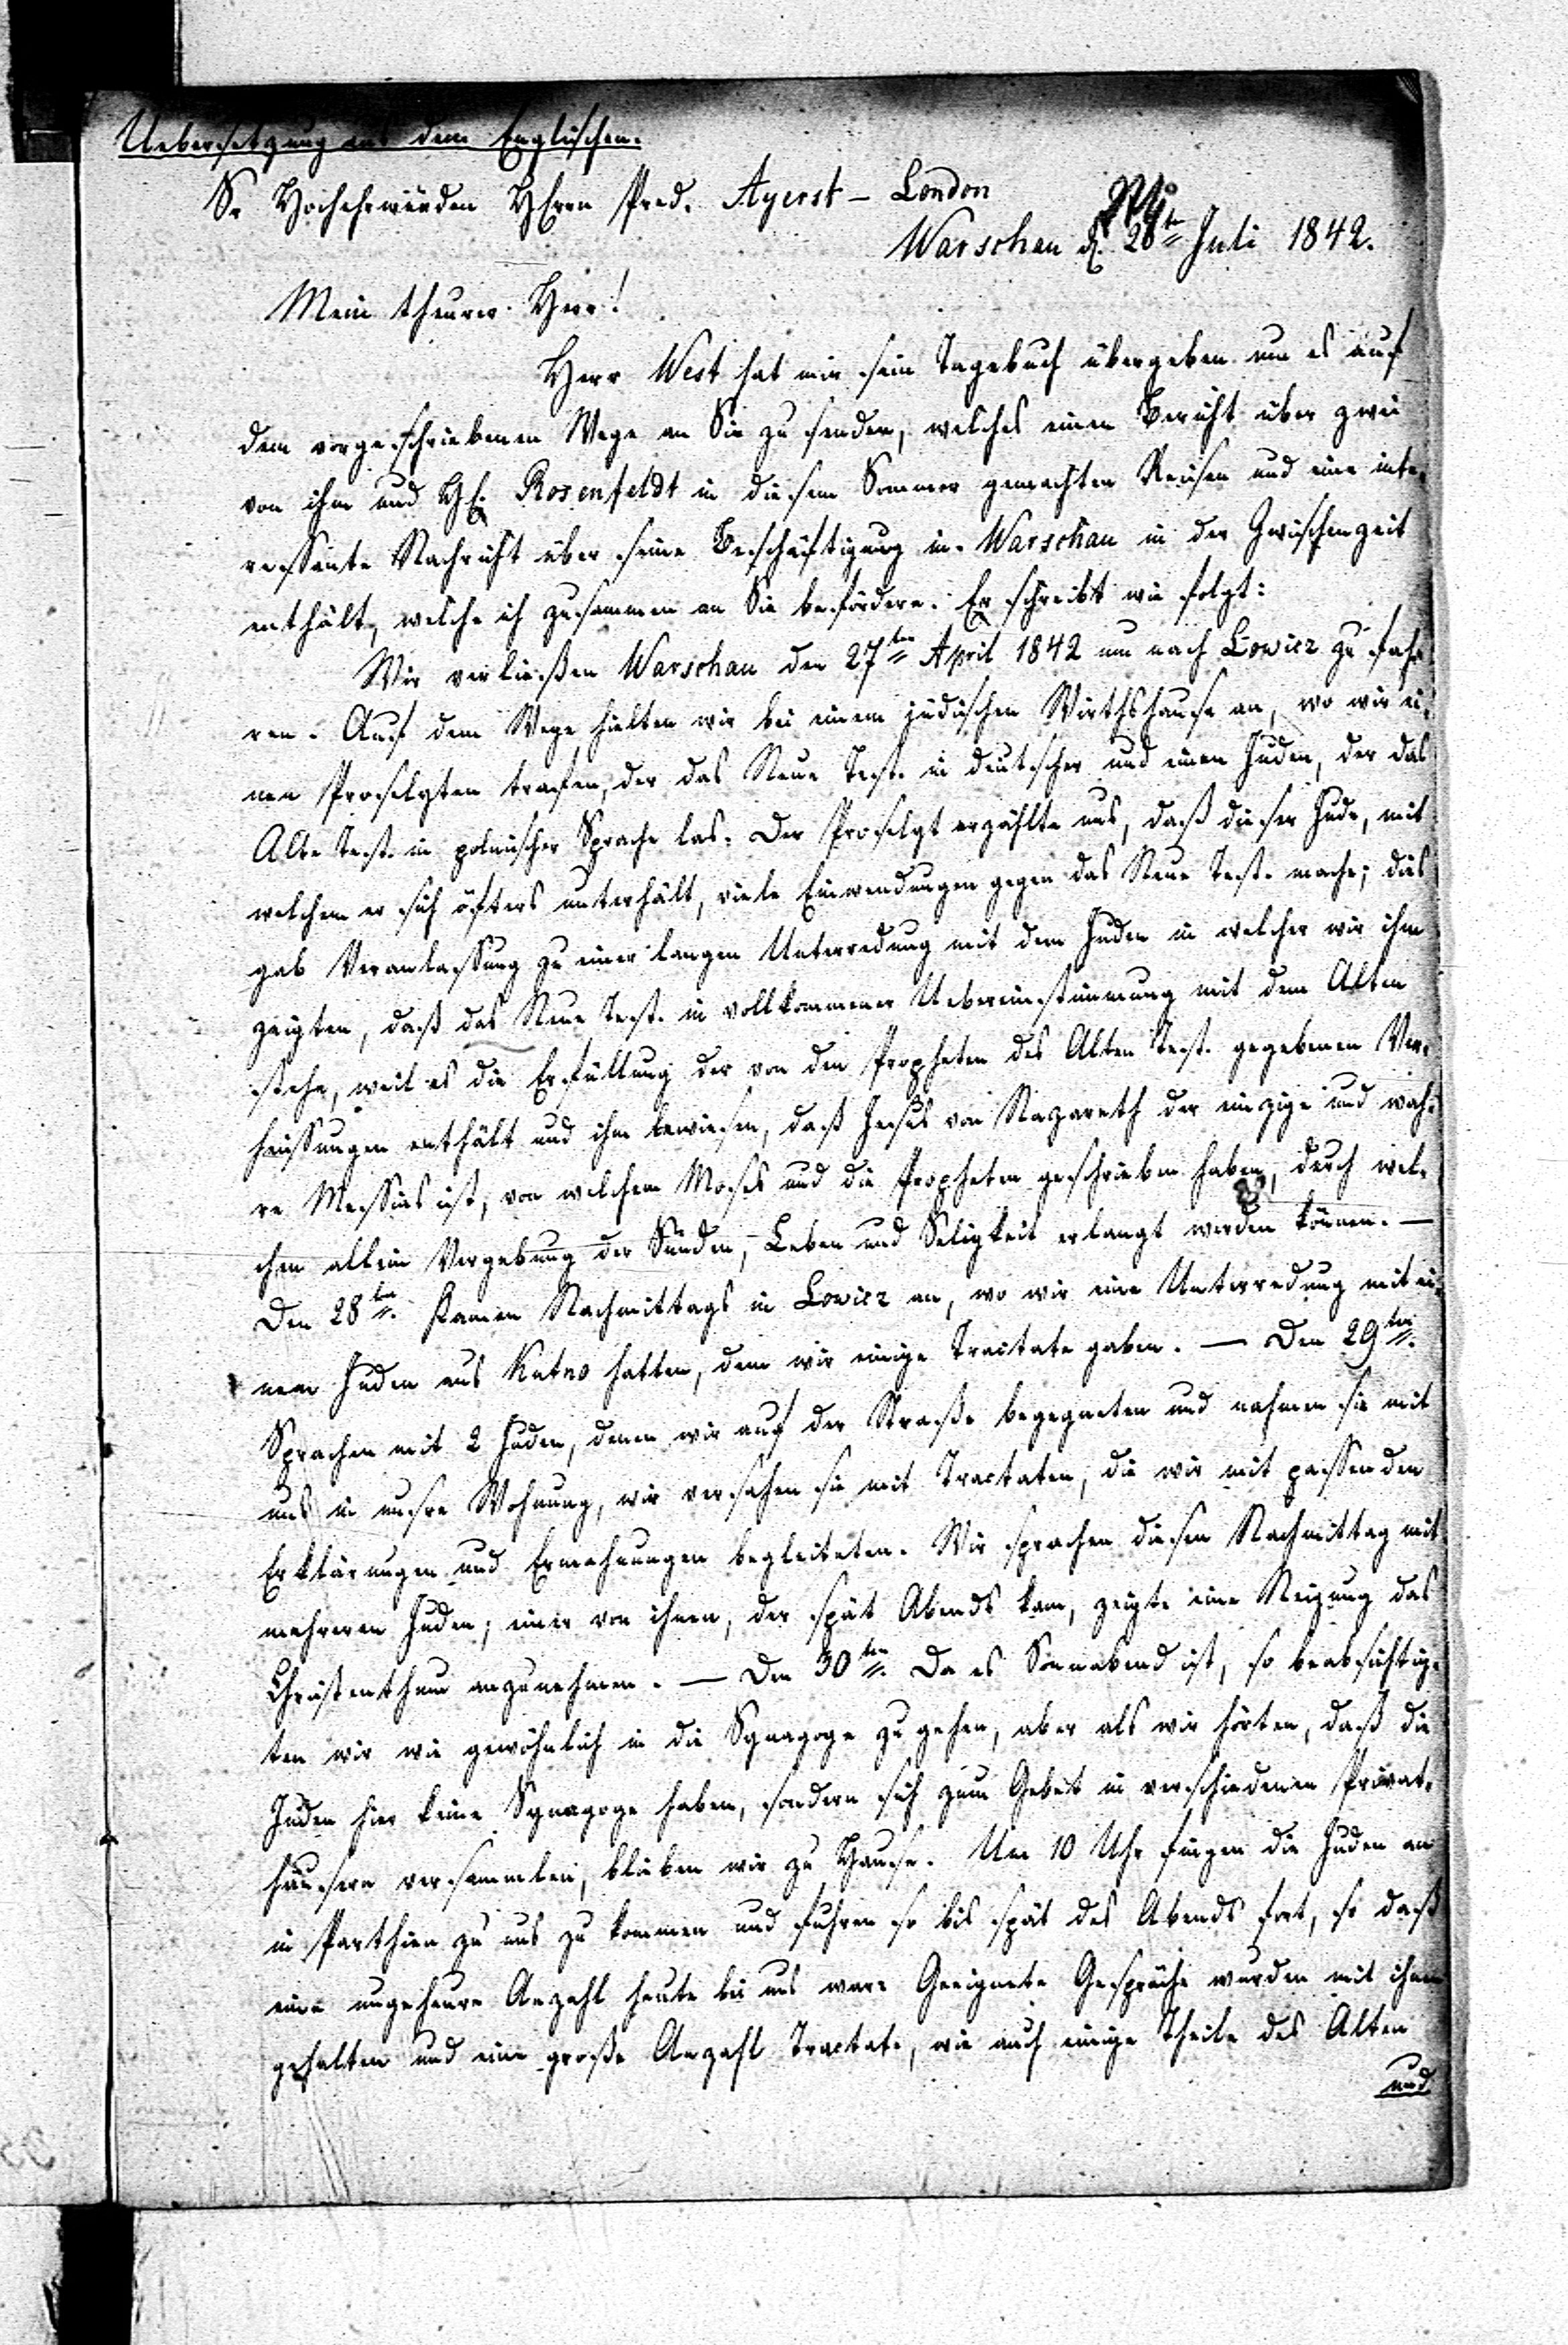 Uebersetzung aus dem Englischen.
Sr Hochehrwürden HErrn Pred. Ayerst – London
Warschau d. 28t Juli 1842.
Mein theurer Herr!
Herr West hat mir sein Tagebuch übergeben um es auf
dem vorgeschriebenen Wege an Sie zu senden, welches einen Bericht über zwei
von ihm und H. Rosenfeldt in diesem Sommer gemachten Reisen und eine inte-
ressante Nachricht über seine Beschäftigung in Warschau in der Zwischenzeit
enthält, welche ich zusammen an Sie befördere. Er schreibt wie folgt:
Wir verließen Warschau den 27ten April 1842 um nach Lowicz zu fah-
ren. Auf dem Wege hielten wir bei einem jüdischen Wirthshause an, wo wir ei-
nen Proselyten trafen, der das Neue Test. in deutscher und einen Juden, der das
Alte Test. in polnischer Sprache las. Der Proselyt erzählte uns, daß dieser Jude, mit
welchem er sich öfters unterhält, viele Einwendungen gegen das Neue Test. mache; dies
gab Veranlassung zu einer langen Unterredung mit dem Juden in welcher wir ihm
zeigten, daß das Neue Test. in vollkommener Uebereinstimmung mit dem Alten
stehe, weil es die Erfüllung der von den Propheten des Alten Test. gegebenen Ver-
heissungen enthält und ihm bewiesen, daß Jesus von Nazareth der einzige und wah-
re Messias ist, von welchem Moses und die Propheten geschrieben haben, durch wel-
chen allein Vergebung der Sünden, Leben und Seligkeit erlangt werden können. —
Den 28ten kamen Nachmittags in Lowicz an, wo wir eine Unterredung mit ei-
nem Juden aus Kutno hatten, dem wir einige Tractate gaben. — Den 29ten
Sprachen mit 2 Juden, denen wir auf der Straße begegneten und nahmen sie mit
uns in unsre Wohnung, wir versahen sie mit Tractaten, die wir mit passenden
Erklärungen und Ermahnungen begleiteten. Wir sprachen diesen Nachmittag mit
mehreren Juden; einer von ihnen, der spät Abends kam, zeigte eine Neigung das
Christenthum anzunehmen. — Den 30ten Da es Sonnabend ist, so beabsichtig-
ten wir wie gewöhnlich in die Synagoge zu gehen, aber als wir hörten, daß die
Juden hier keine Synagoge haben, sondern sich zum Gebet in verschiedenen Privat-
häusern versammlen, blieben wir zu Hause. Um 10 Uhr fingen die Juden an
in Parthien zu uns zu kommen und fuhren so bis spät des Abends fort, so daß
eine ungeheure Anzahl heute bei uns war. Geeignete Gespräche wurden mit ihnen
gehalten und eine große Anzahl Tractate, wie auch einige Theile des Alten
und